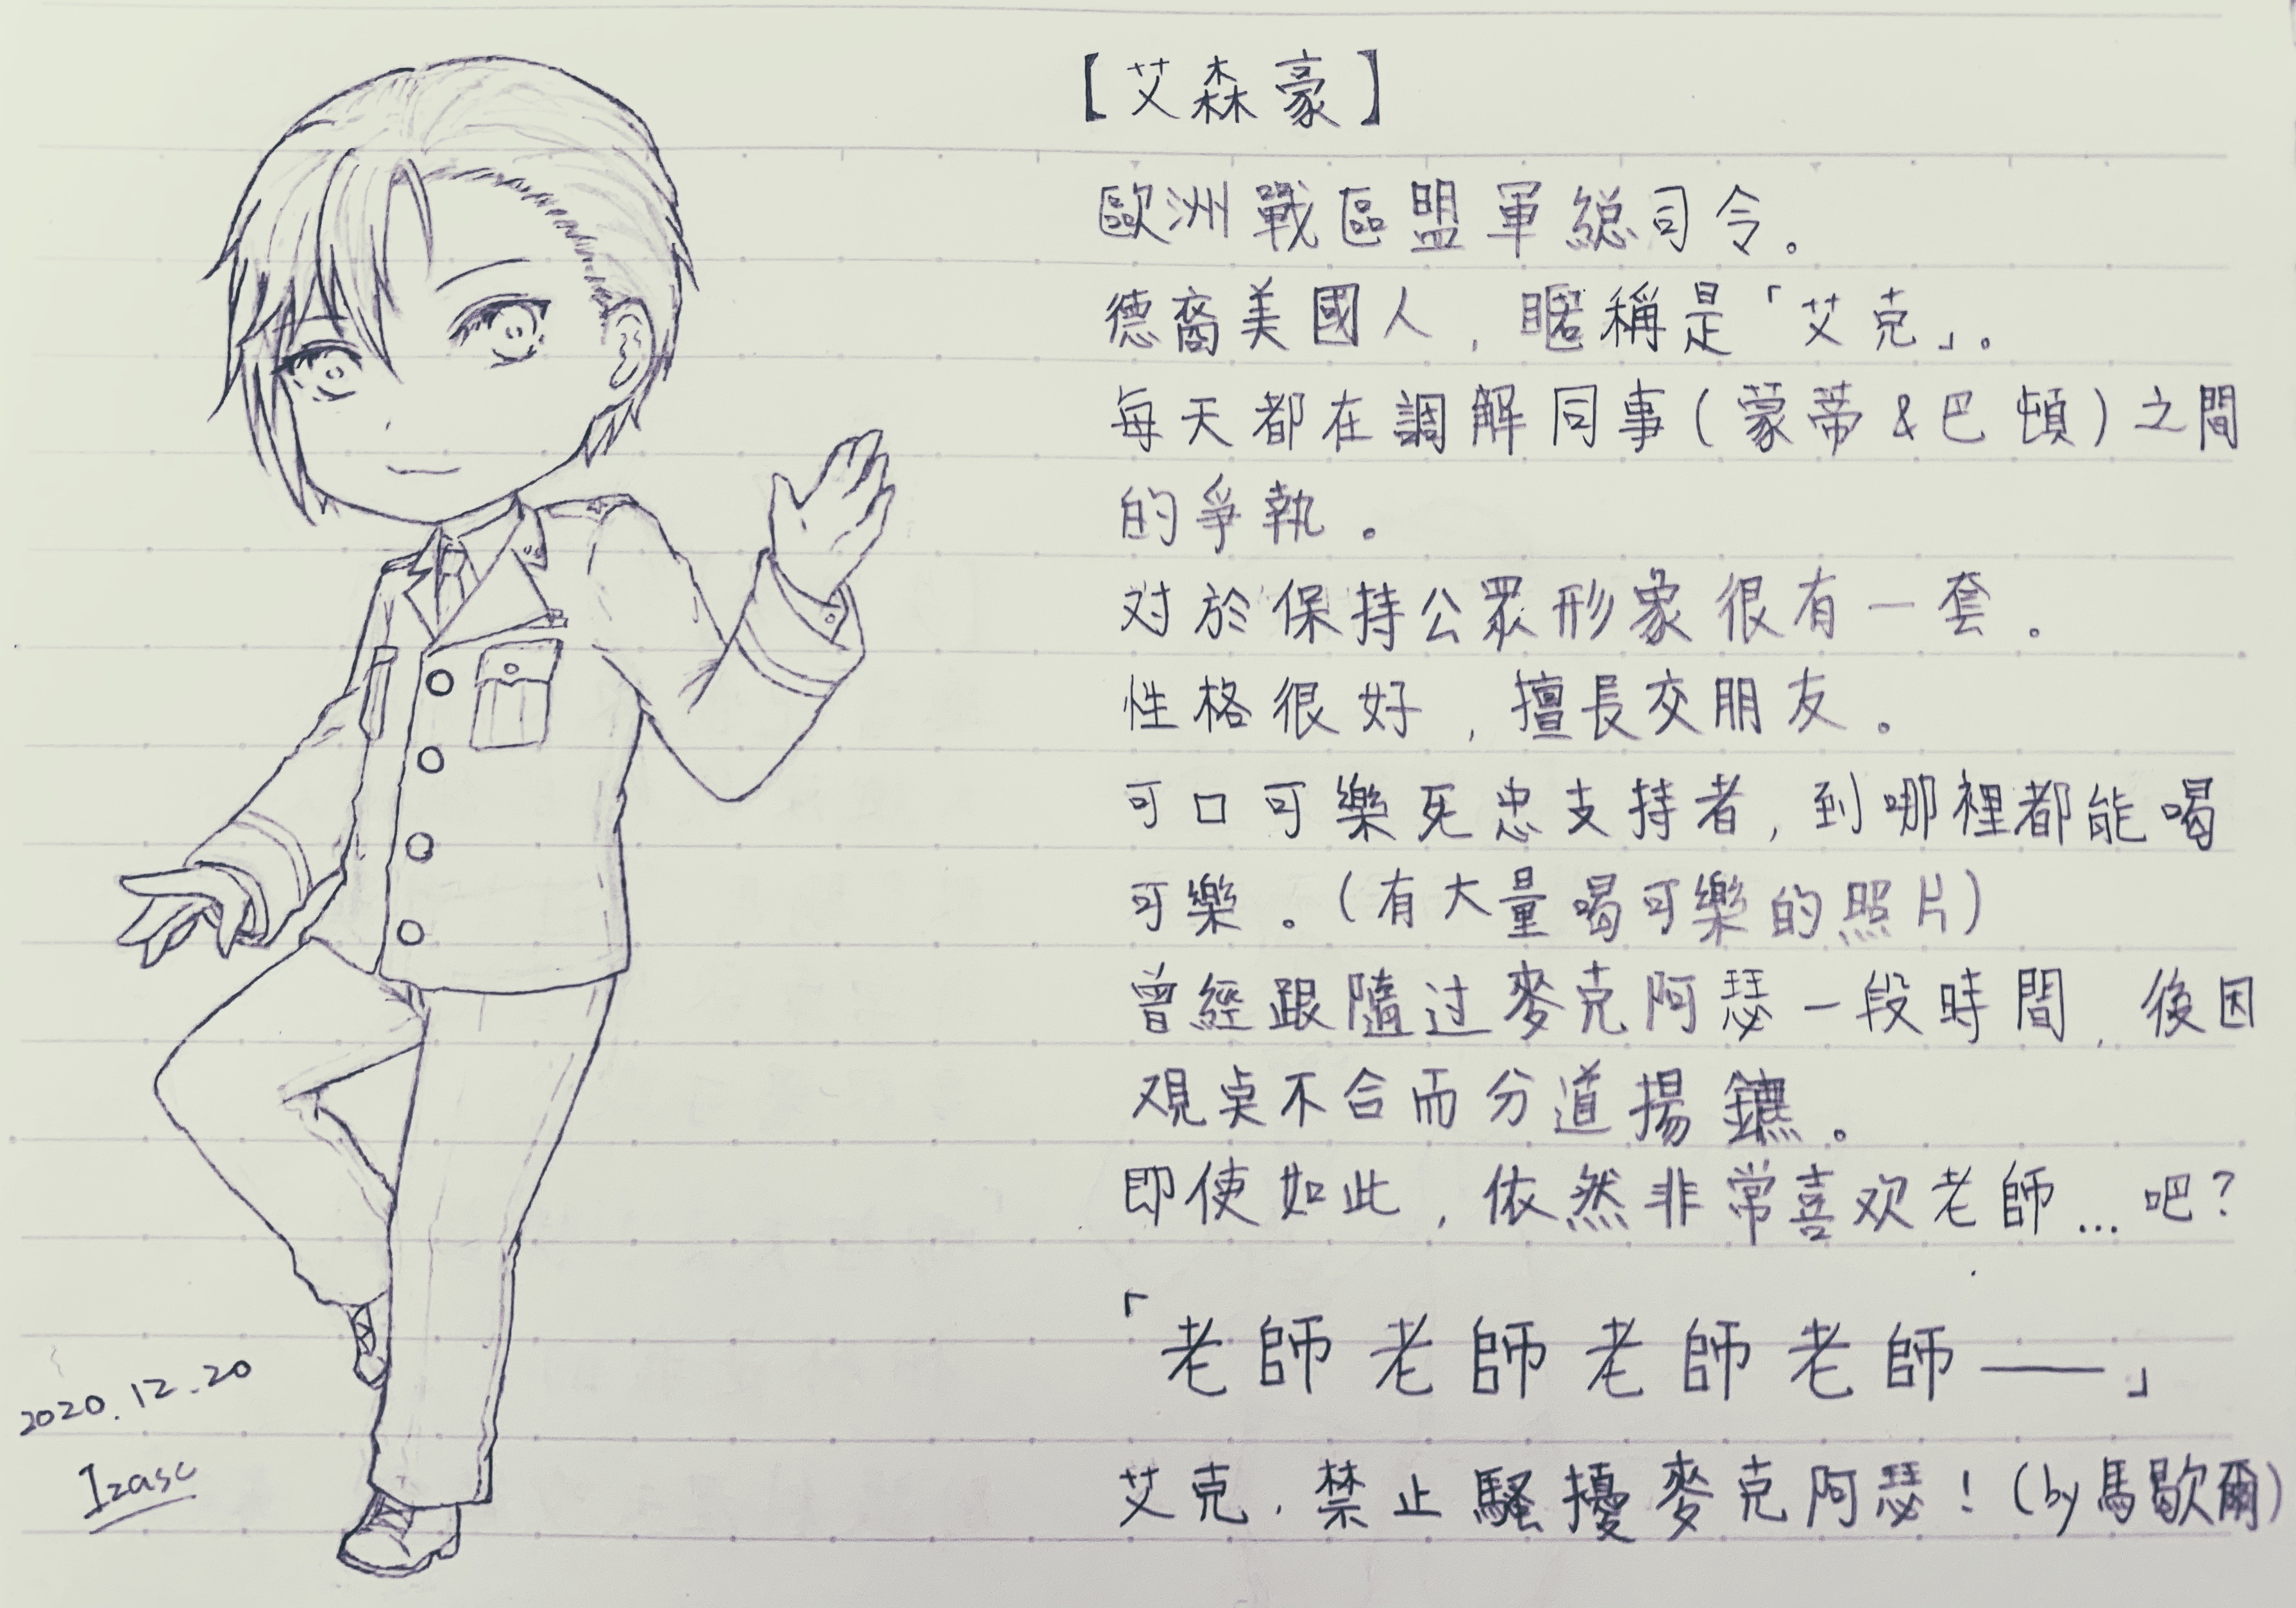 【艾森豪】
歐洲戰區盟軍総司令。
德裔美國人，暱稱是「艾克」。
每天都在調解同事(蒙蒂&巴頓)之間
的爭執。
对於保持公眾形象很有一套。
性格很好，擅長交朋友。
可口可樂死忠支持者，到哪裡都能喝
可樂。(有大量喝可樂的照片)
曾經跟隨过麥克阿瑟一段時間，後因
观点不合而分道揚鑣。
即使如此，依然非常喜欢老師…吧?
「老師老師老師老師——」
艾克，禁止騷擾麥克阿瑟!(by馬歇爾)
2020.12.20
Izasc